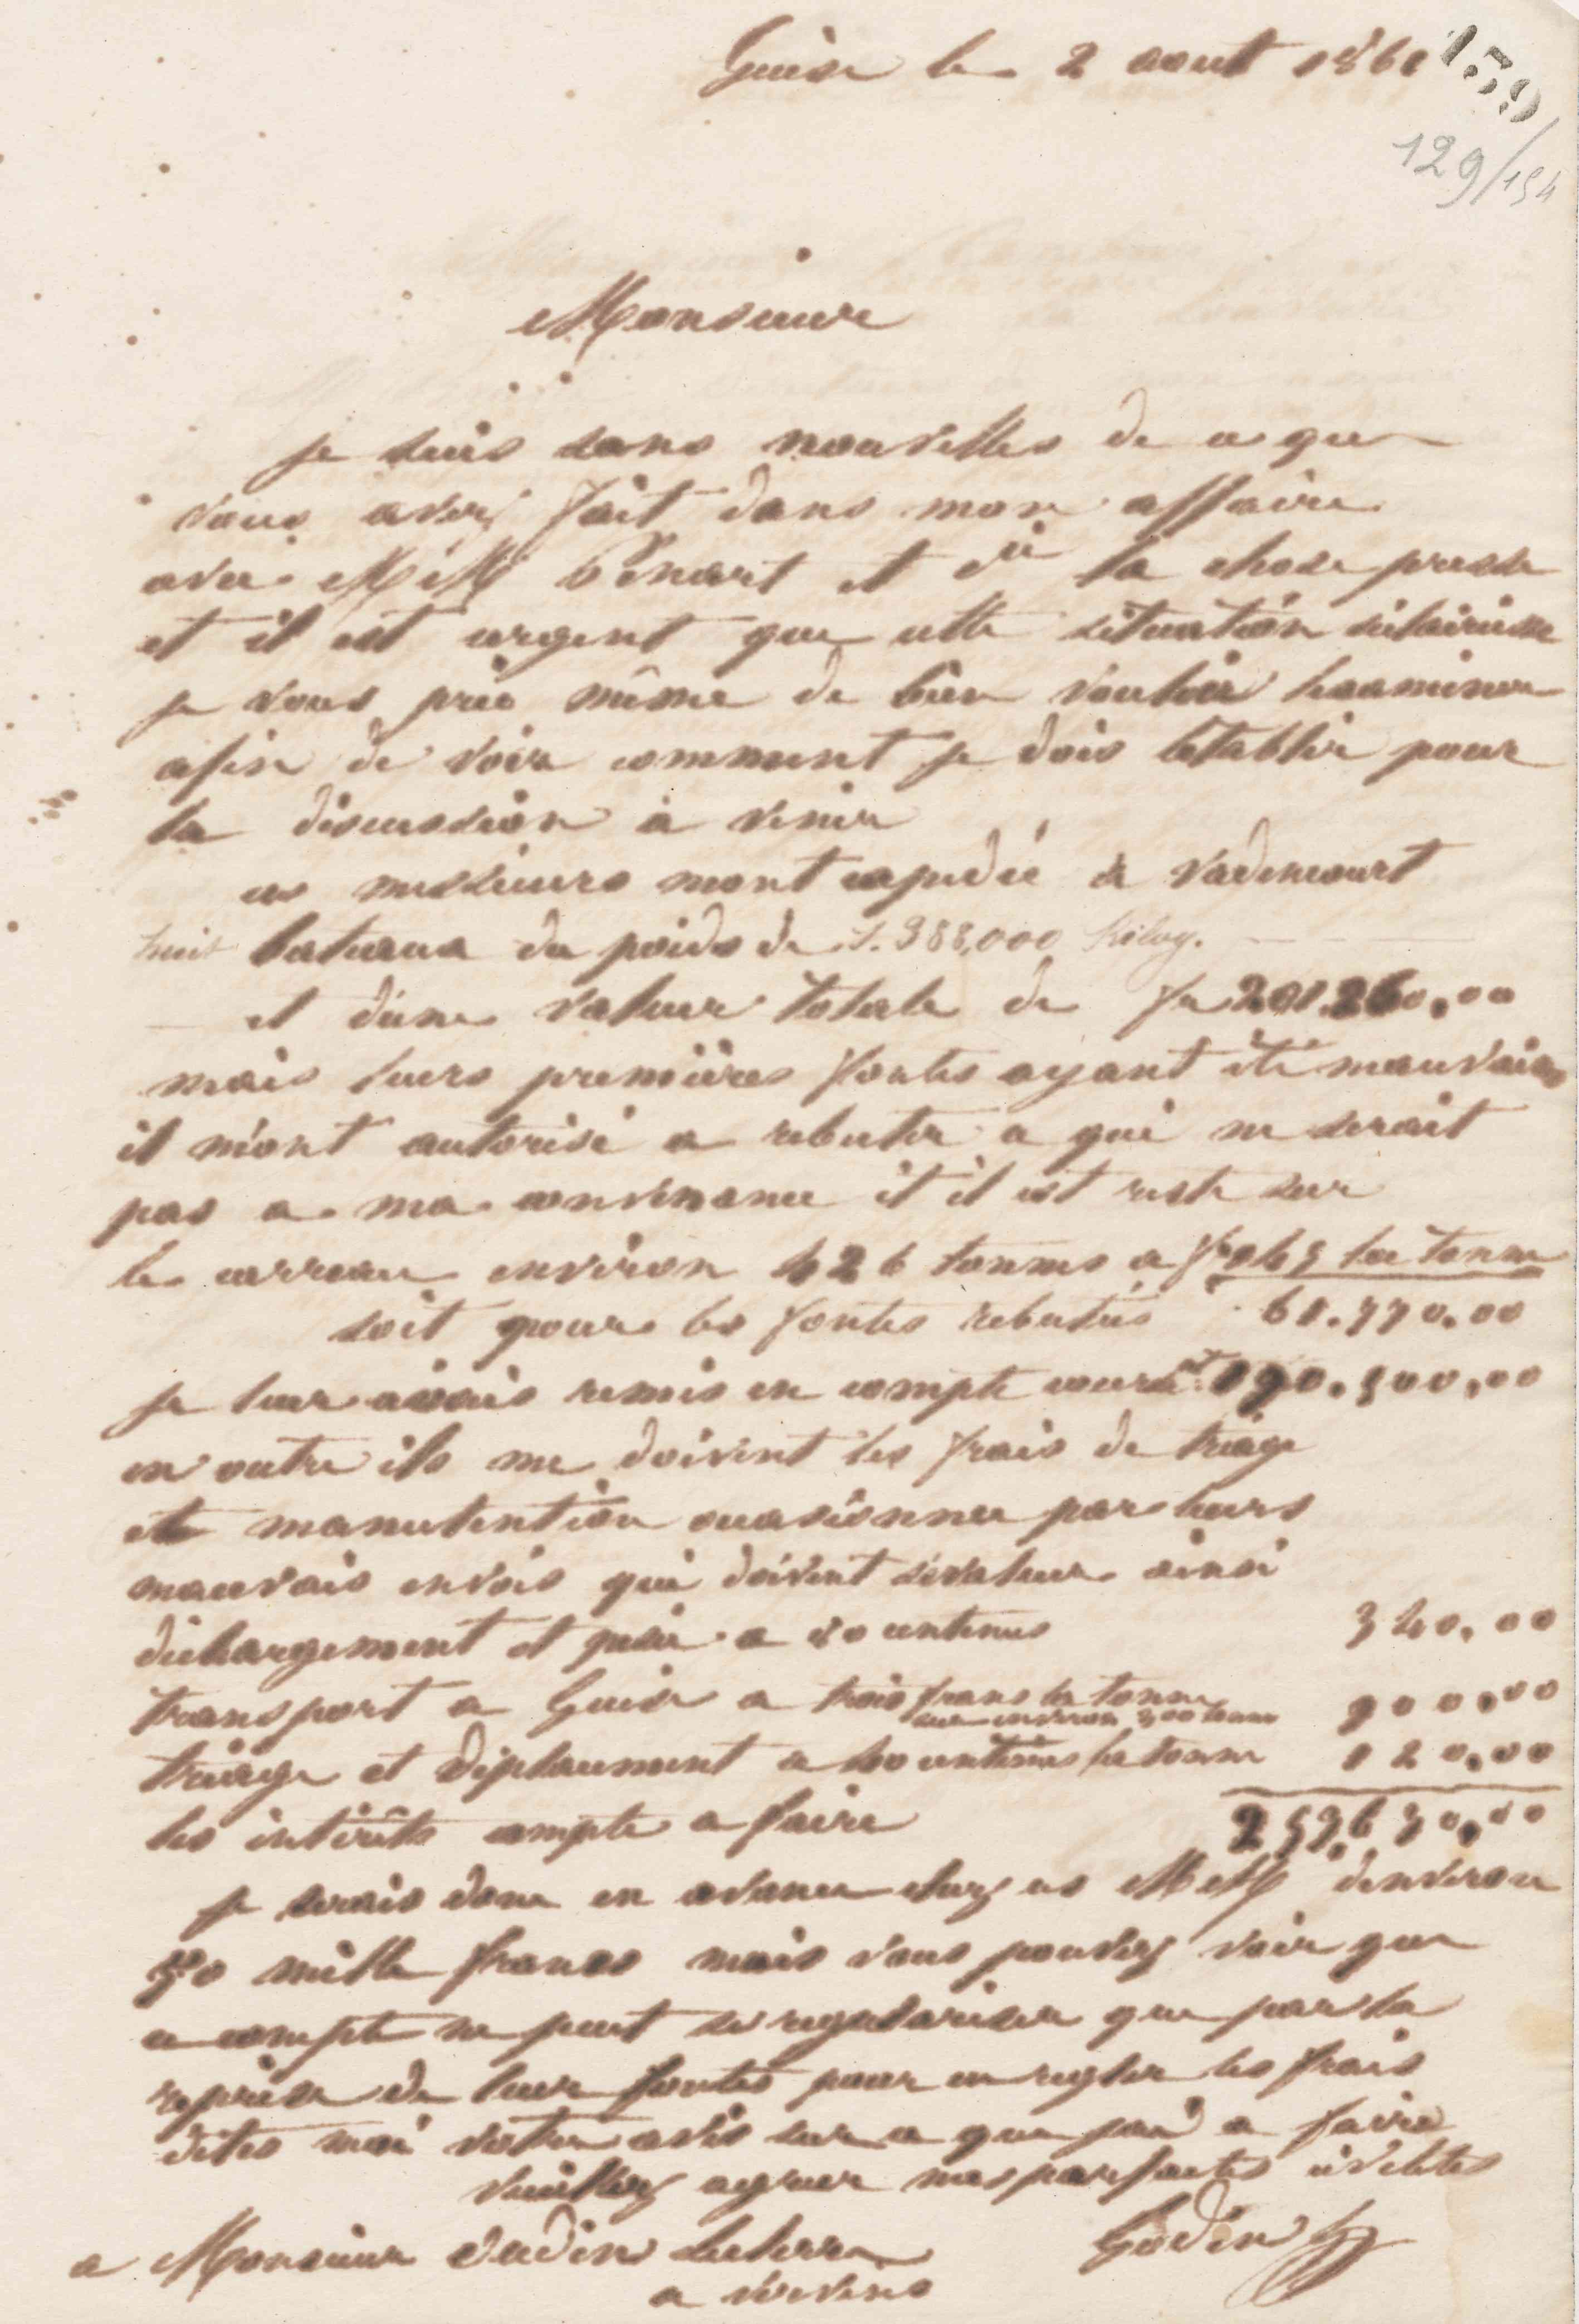 Guise le 2 aout 1861
159
129/154
Monsieur
je suis sans nouvelles de ce que
vous avez fait dans mon affaire
avec MM Vénart et Cie la chose presse
et il est urgent que cette situation séclaircisse
je vous prie même de bien vouloir lexaminer
afin de voir comment je dois létablir pour
la discussion à venir
ces messieurs mont expédié a Vadencourt
huit bateaux du poids de 1.388,000 Kilog.
et d'une valeur totale de fr 201.260,00
mais leurs premières fontes ayant été mauvaises
il m'ont autorisé a rebuter ce qui ne serait
pas a ma convenance et il est resté sur
le carreau environ 426 tonnes a fr 145 la tonne
soit pour les fontes rebutées 61.770.00
je leur avais remis en compte courant 190.500,00
en outre ils me doivent les frais de triage
et manutention ocasionner par leurs
mauvais envois qui doivent sévaluer ainsi
déchargement et pesée a 80 centimes 340,00
transport a Guise a trois francs la tonne 900,00
sur environ 300 tonnes
triage et déplacement a 40 centimes la tonne 120,00
les intérêts compte a faire 253,630,00
je serais donc en avance chez ces MM d'environ
50 mille francs mais vous pouvez voir que
ce compte ne peut se regulariser que par la
reprise de leur fontes pour en regler les frais
dites moi votre avis sur ce que jai a faire
veuillez agreer mes parfaites civilités
Godin
a Monsieur Oudin Leclere
a Vervins